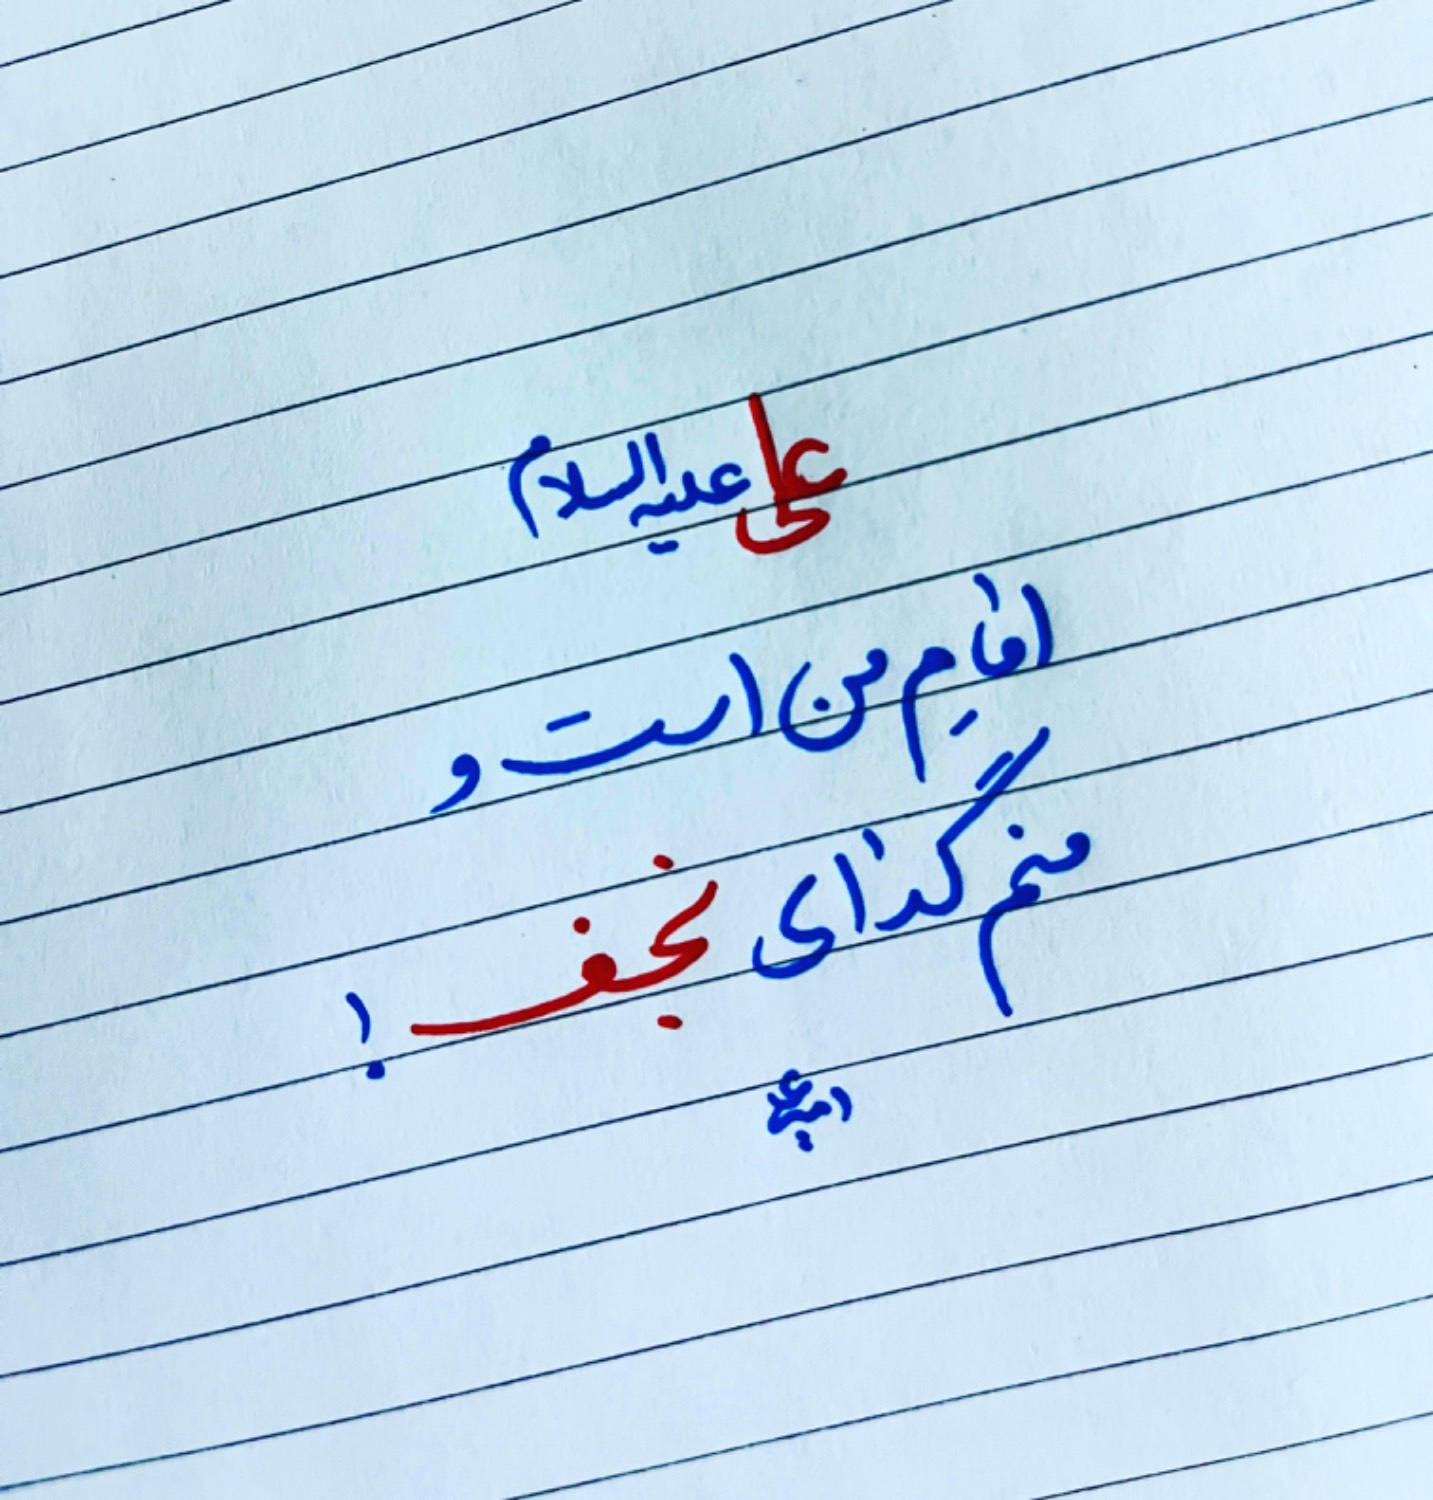 علی علیه السلام
امٰامِ من است و
منم گدٰای نجف !